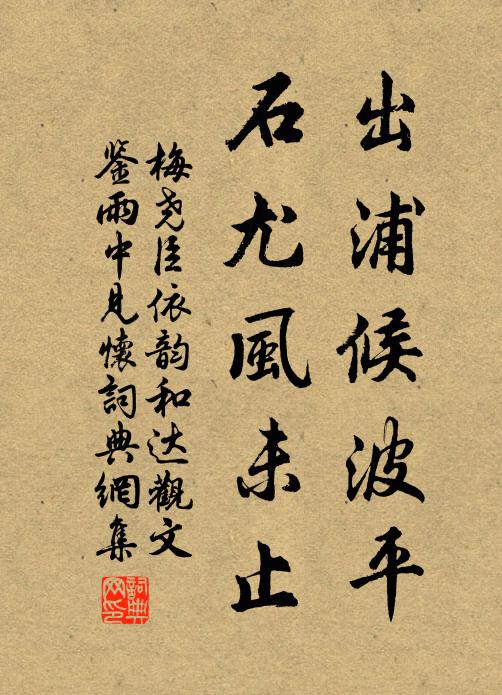 出浦候波平
石尤風未止
梅尧臣依韵和达觀文
鉴雨中見懷詞典網集
詞典网印